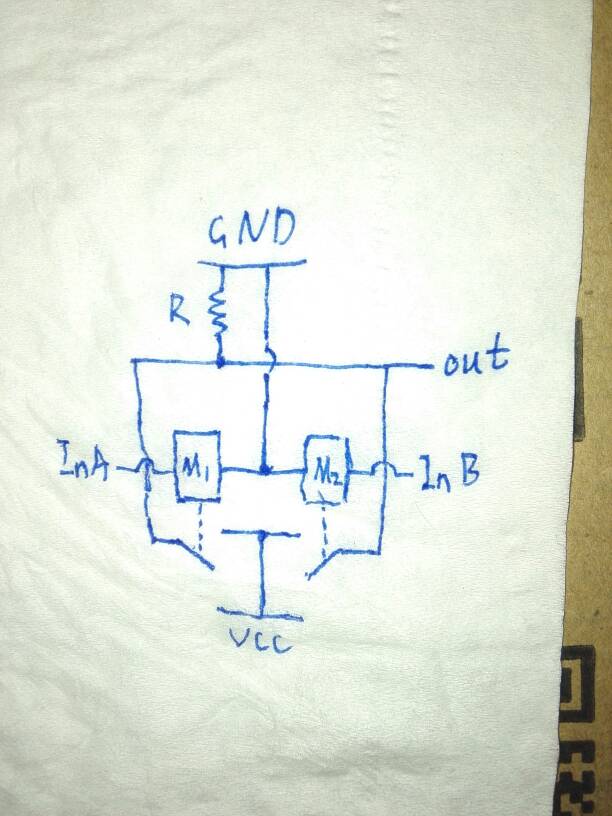 GND
R
out
InA
M1
M2
InB
VCC